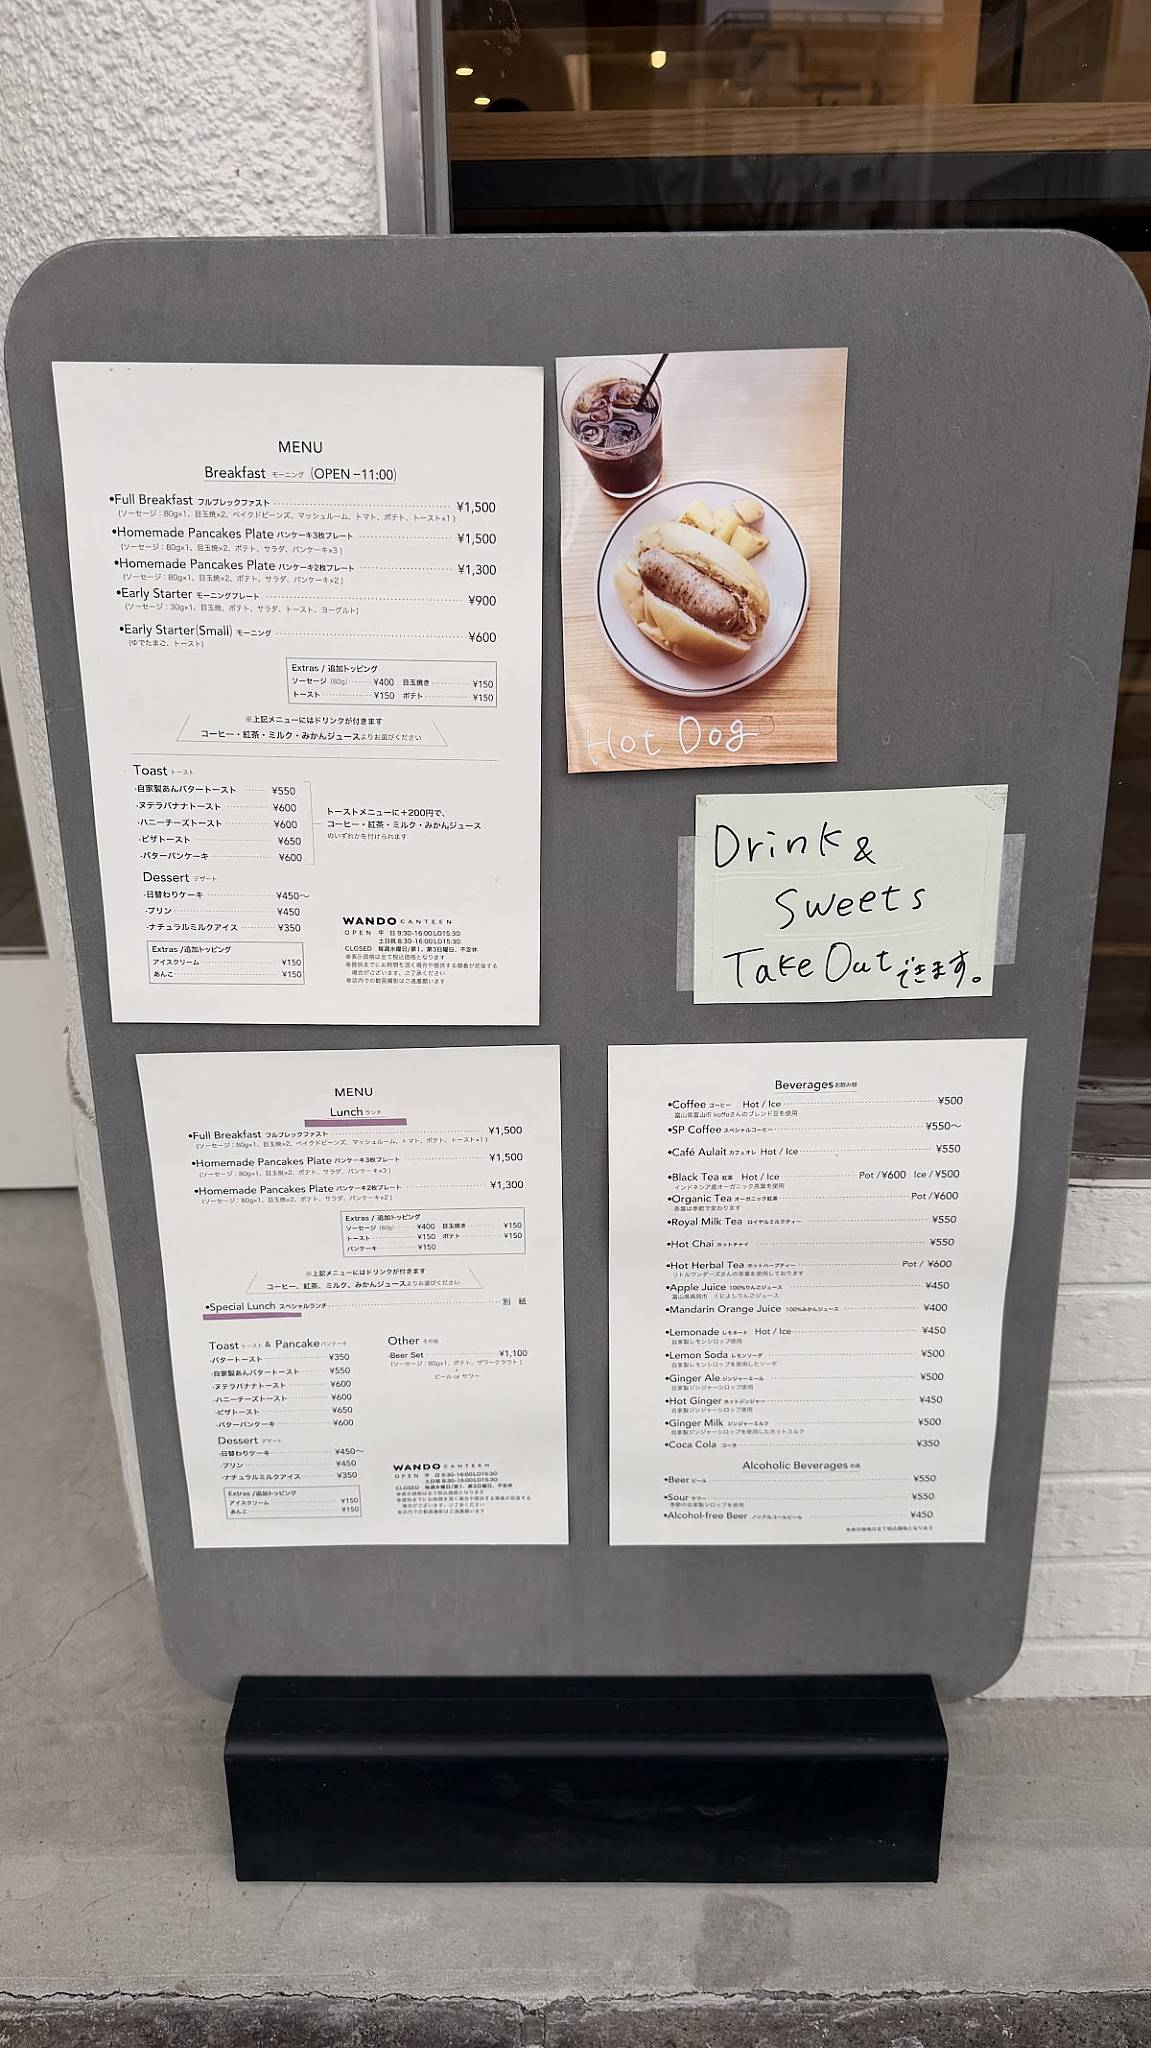 MENU
Breakfast モーニング (OPEN –11:00)
•Full Breakfast フルブレックファスト ¥1,500
(ソーセージ:80g×1、目玉焼×2、ベイクドビーンズ、マッシュルーム、トマト、ポテト、トースト×1)
•Homemade Pancakes Plate パンケーキ3枚プレート ¥1,500
(ソーセージ:80g×1、目玉焼×2、ポテト、サラダ、パンケーキ×3)
•Homemade Pancakes Plate パンケーキ2枚プレート ¥1,300
(ソーセージ:80g×1、目玉焼×2、ポテト、サラダ、パンケーキ×2)
•Early Starter モーニングプレート ¥900
(ソーセージ:30g×1、目玉焼、ポテト、サラダ、トースト、ヨーグルト)
•Early Starter(Small) モーニング ¥600
(ゆでたまご、トースト)
Extras / 追加トッピング
ソーセージ (80g) ¥400 目玉焼き ¥150
トースト ¥150 ポテト ¥150
※上記メニューにはドリンクが付きます
コーヒー・紅茶・ミルク・みかんジュースよりお選びください
Toast トースト
・自家製あんバタートースト ¥550
・ヌテラバナナトースト ¥600
・ハニーチーズトースト ¥600
・ピザトースト ¥650
・バターパンケーキ ¥600
トーストメニューに+200円で、
コーヒー・紅茶・ミルク・みかんジュース
のいずれかを付けられます
Dessert デザート
・日替わりケーキ ¥450〜
・プリン ¥450
・ナチュラルミルクアイス ¥350
Extras /追加トッピング
アイスクリーム ¥150
あんこ ¥150
WANDO CANTEEN
OPEN 平 日 9:30-16:00 LO15:30
土日祝 8:30-16:00 LO15:30
CLOSED 毎週水曜日/第1、第3日曜日、不定休
※表示価格は全て税込価格となります
※提供までにお時間を頂く場合や提供する順番が前後する
場合がございます、ご了承ください
※店内での動画撮影はご遠慮願います
Hot Dog
Drink &
Sweets
Take Out できます。
MENU
Lunch ランチ
•Full Breakfast フルブレックファスト ¥1,500
(ソーセージ:80g×1、目玉焼×2、ベイクドビーンズ、マッシュルーム、トマト、ポテト、トースト×1)
•Homemade Pancakes Plate パンケーキ3枚プレート ¥1,500
(ソーセージ:80g×1、目玉焼×2、ポテト、サラダ、パンケーキ×3)
•Homemade Pancakes Plate パンケーキ2枚プレート ¥1,300
(ソーセージ:80g×1、目玉焼×2、ポテト、サラダ、パンケーキ×2)
Extras / 追加トッピング
ソーセージ (80g) ¥400 目玉焼き ¥150
トースト ¥150 ポテト ¥150
パンケーキ ¥150
※上記メニューにはドリンクが付きます
コーヒー、紅茶、ミルク、みかんジュースよりお選びください
•Special Lunch スペシャルランチ 別 紙
Toast トースト & Pancake パンケーキ
・バタートースト ¥350
・自家製あんバタートースト ¥550
・ヌテラバナナトースト ¥600
・ハニーチーズトースト ¥600
・ピザトースト ¥650
・バターパンケーキ ¥600
Other その他
・Beer Set ¥1,100
(ソーセージ:80g×1、ポテト、ザワークラウト)
+
ビール or サワー
Dessert デザート
・日替わりケーキ ¥450〜
・プリン ¥450
・ナチュラルミルクアイス ¥350
Extras /追加トッピング
アイスクリーム ¥150
あんこ ¥150
WANDO CANTEEN
OPEN 平 日 9:30-16:00 LO15:30
土日祝 8:30-16:00 LO15:30
CLOSED 毎週水曜日/第1、第3日曜日、不定休
※表示価格は全て税込価格となります
※提供までにお時間を頂く場合や提供する順番が前後する
場合がございます、ご了承ください
※店内での動画撮影はご遠慮願います
Beverages お飲み物
•Coffee コーヒー Hot / Ice ¥500
富山県富山市 koffeさんのブレンド豆を使用
•SP Coffee スペシャルコーヒー ¥550〜
•Café Aulait カフェオレ Hot / Ice ¥550
•Black Tea 紅茶 Hot / Ice Pot /¥600 Ice /¥500
インドネシア産オーガニック茶葉を使用
•Organic Tea オーガニック紅茶 Pot /¥600
茶葉は季節で変わります
•Royal Milk Tea ロイヤルミルクティー ¥550
•Hot Chai ホットチャイ ¥550
•Hot Herbal Tea ホットハーブティー Pot / ¥600
リトルワンダーズさんの茶葉を使用しております
•Apple Juice 100%りんごジュース ¥450
富山県高岡市 くによしりんごジュース
•Mandarin Orange Juice 100%みかんジュース ¥400
•Lemonade レモネード Hot / Ice ¥450
自家製レモンシロップ使用
•Lemon Soda レモンソーダ ¥500
自家製レモンシロップを使用したソーダ
•Ginger Ale ジンジャーエール ¥500
自家製ジンジャーシロップ使用
•Hot Ginger ホットジンジャー ¥450
自家製ジンジャーシロップ使用
•Ginger Milk ジンジャーミルク ¥500
自家製ジンジャーシロップを使用したホットミルク
•Coca Cola コーラ ¥350
Alcoholic Beverages お酒
•Beer ビール ¥550
•Sour サワー ¥550
季節の自家製シロップを使用
•Alcohol-free Beer ノンアルコールビール ¥450
※表示価格は全て税込価格となります